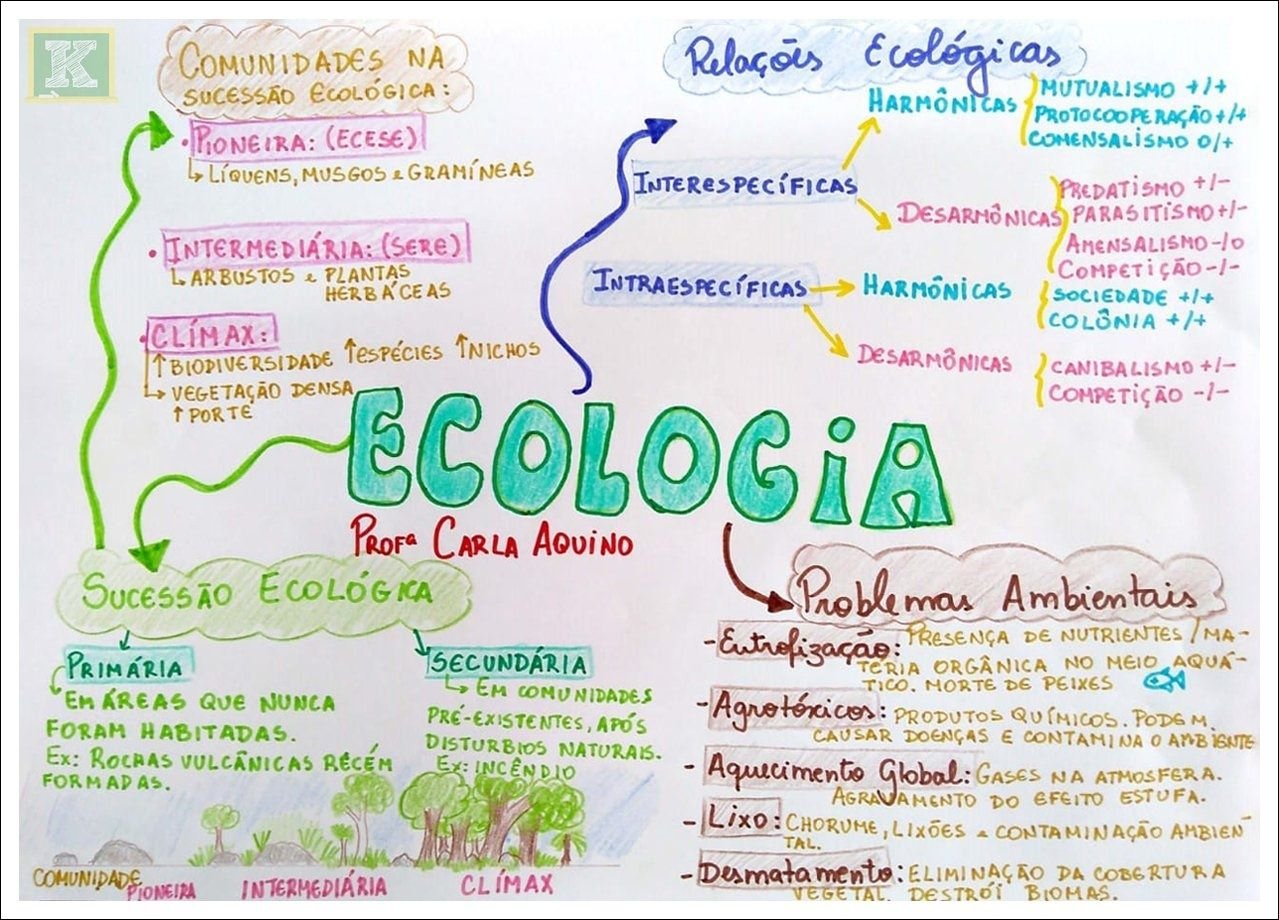 K
COMUNIDADES NA
SUCESSÃO ECOLÓGICA:
• PIONEIRA: (ECESE)
↳ LÍQUENS, MUSGOS e GRAMÍNEAS
• INTERMEDIÁRIA: (SERE)
↳ ARBUSTOS e PLANTAS
HERBÁCEAS
• CLÍMAX:
↑BIODIVERSIDADE ↑ESPÉCIES ↑NICHOS
↳ VEGETAÇÃO DENSA
↑ PORTE
Relações Ecológicas
INTERESPECÍFICAS
HARMÔNICAS
MUTUALISMO +/+
PROTOCOOPERAÇÃO +/+
COMENSALISMO 0/+
DESARMÔNICAS
PREDATISMO +/-
PARASITISMO +/-
AMENSALISMO -/0
COMPETIÇÃO -/-
INTRAESPECÍFICAS
HARMÔNICAS
SOCIEDADE +/+
COLÔNIA +/+
DESARMÔNICAS
CANIBALISMO +/-
COMPETIÇÃO -/-
ECOLOGiA
PROFª CARLA AQUINO
SUCESSÃO ECOLÓGICA
PRIMÁRIA
EM ÁREAS QUE NUNCA
FORAM HABITADAS.
Ex: ROCHAS VULCÂNICAS RECÉM
FORMADAS.
SECUNDÁRIA
↳ EM COMUNIDADES
PRÉ-EXISTENTES, APÓS
DISTURBIOS NATURAIS.
Ex: INCÊNDIO
COMUNIDADE
PIONEIRA
INTERMEDIÁRIA
CLÍMAX
Problemas Ambientais
- Eutrofização: PRESENÇA DE NUTRIENTES / MA-
TÉRIA ORGÂNICA NO MEIO AQUÁ-
TICO. MORTE DE PEIXES
- Agrotóxicos: PRODUTOS QUÍMICOS. PODEM
CAUSAR DOENÇAS E CONTAMINA O AMBIENTE
- Aquecimento Global: GASES NA ATMOSFERA.
AGRAVAMENTO DO EFEITO ESTUFA.
- Lixo: CHORUME, LIXÕES e CONTAMINAÇÃO AMBIEN-
TAL.
- Desmatamento: ELIMINAÇÃO DA COBERTURA
VEGETAL. DESTRÓI BIOMAS.